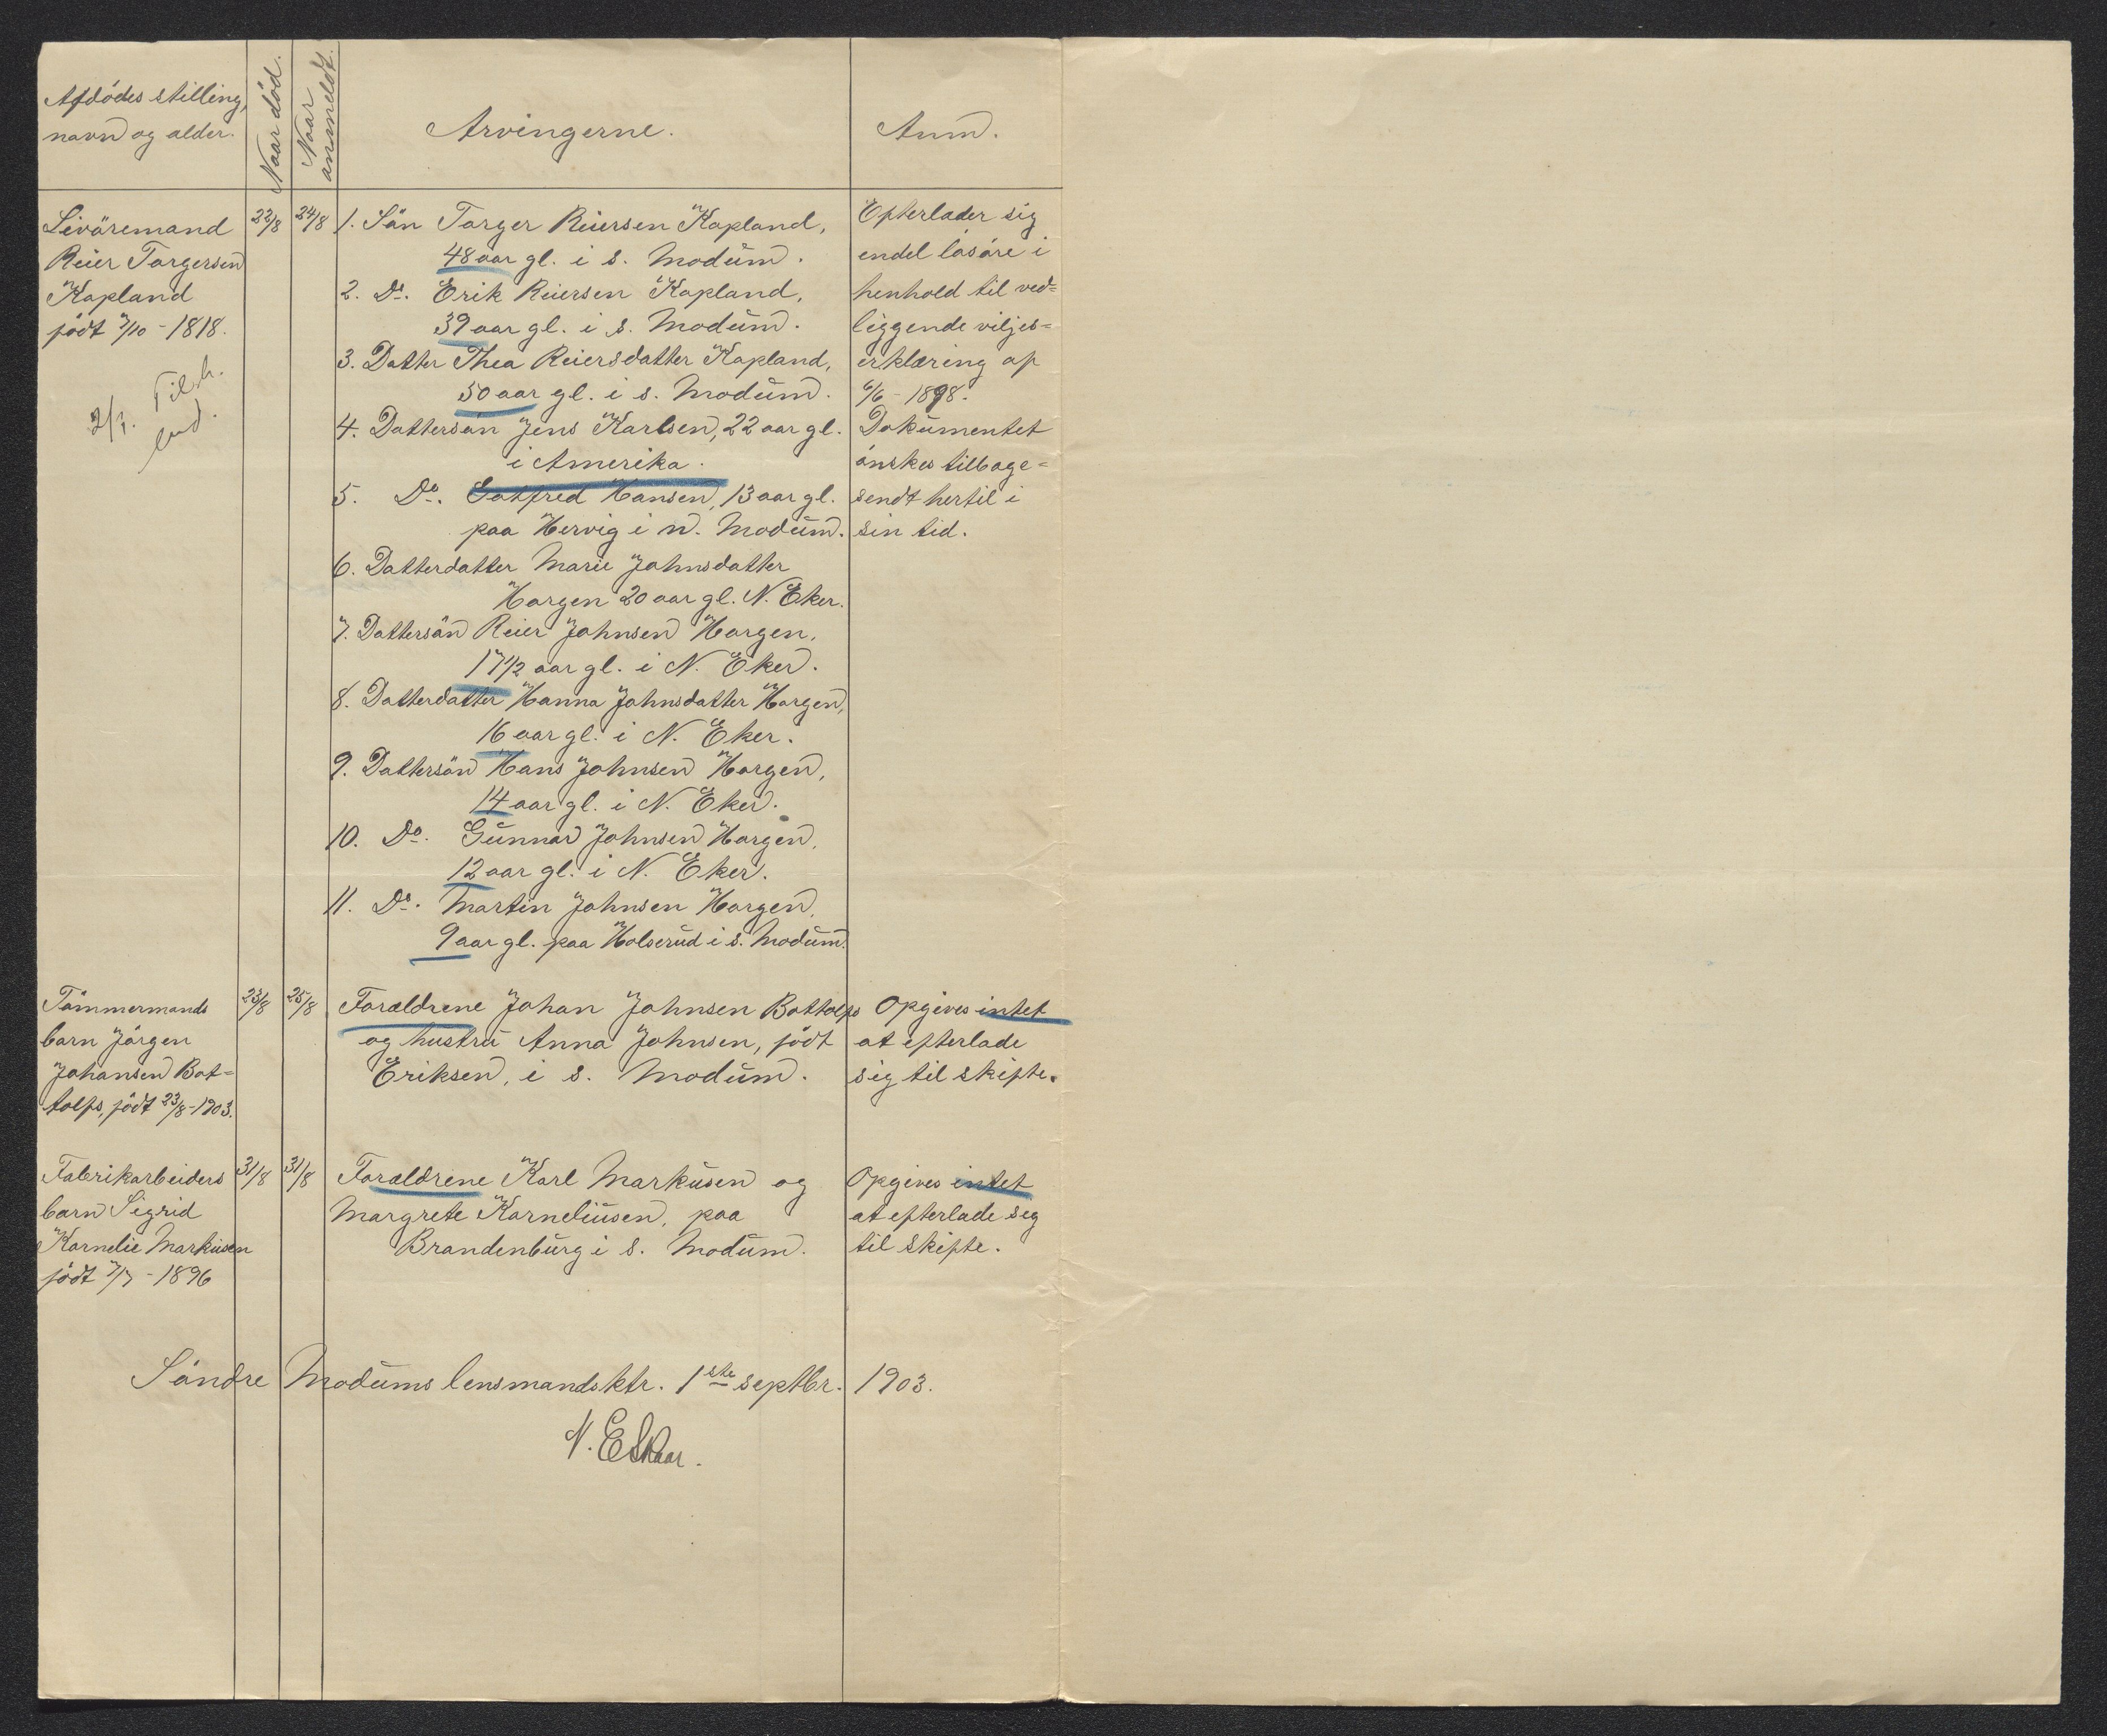 Afdödes stilling,
navn og alder.
Naar död.
Naar
anmeldt.
Arvingerne.
Anm.
Livöremand
Reier Torgersen
Kopland
född 7/10 - 1818.
22/8
24/8
1. Sön Torger Reiersen Kopland,
48 aar gl. i s. Modum.
2. Do. Erik Reiersen Kopland,
39 aar gl. i s. Modum.
3. Datter Thea Reiersdatter Kopland,
50 aar gl. i s. Modum.
4. Dattersön Jens Karlsen, 22 aar gl.
i Amerika.
5. Do. Gotfred Hansen, 13 aar gl.
paa Hervig i n. Modum.
6. Datterdatter Marie Johnsdatter
Horgen 20 aar gl. N. Eker.
7. Dattersön Reier Johnsen Horgen,
17 1/2 aar gl. i N. Eker.
8. Datterdatter Hanna Johnsdatter Horgen,
16 aar gl. i N. Eker.
9. Dattersön Hans Johnsen Horgen,
14 aar gl. i N. Eker.
10. Do. Gunnar Johnsen Horgen,
12 aar gl. i N. Eker.
11. Do. Martin Johnsen Horgen,
9 aar gl. paa Holserud i s. Modum.
Efterlader sig
endel lösöre i
henhold til ved=
liggende viljes=
erklæring af
6/6 - 1898.
Dokumentet
önskes tilbage=
sendt hertil i
sin tid.
Tömmermands
barn Jörgen
Johansen Bot=
tolfs, född 23/8 - 1903.
23/8
25/8
Forældrene Johan Johnsen Bottolfs
og hustru Anna Johnsen, född
Eriksen, i s. Modum.
Opgives intet
at efterlade
sig til skifte.
Fabrikarbeiders
barn Sigrid
Kornelie Markusen
född 7/7 - 1896
31/8
31/8
Forældrene Karl Markusen og
Margrete Korneliusen, paa
Brandenburg i s. Modum.
Opgives intet
at efterlade sig
til skifte.
Söndre Modums lensmandsktr. 1ste septbr. 1903.
N. E Skaar.